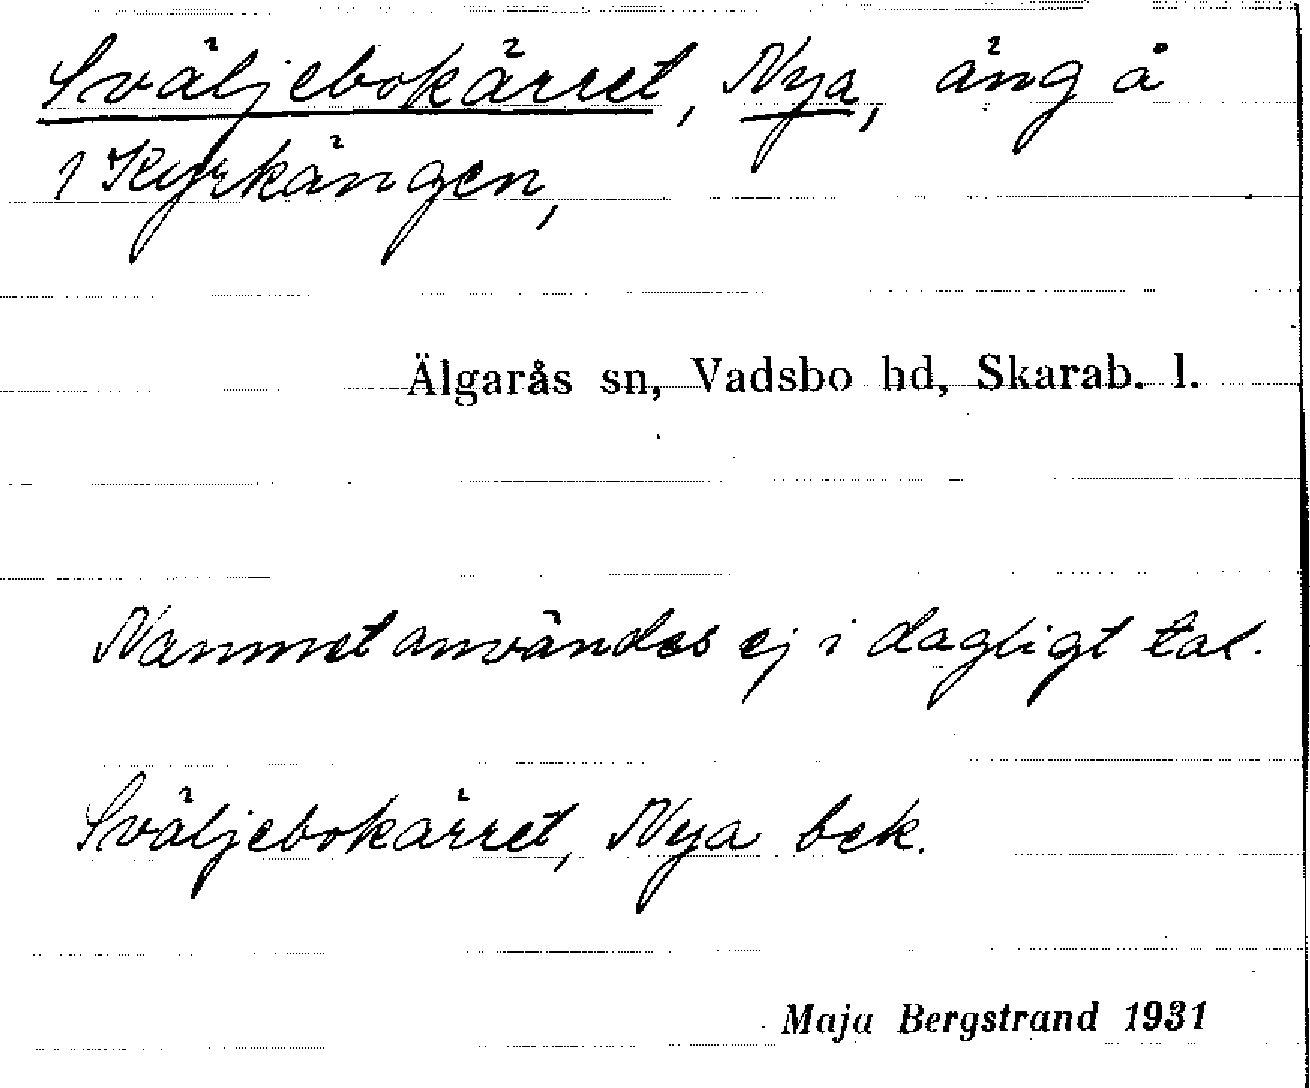 Sväljebokärret, Nya, äng å
1 Kyrkängen,
Älgarås sn, Vadsbo hd, Skarab. l.
Namnet användes ej i dagligt tal.
Sväljebokärret, Nya bek.
Maja Bergstrand 1931